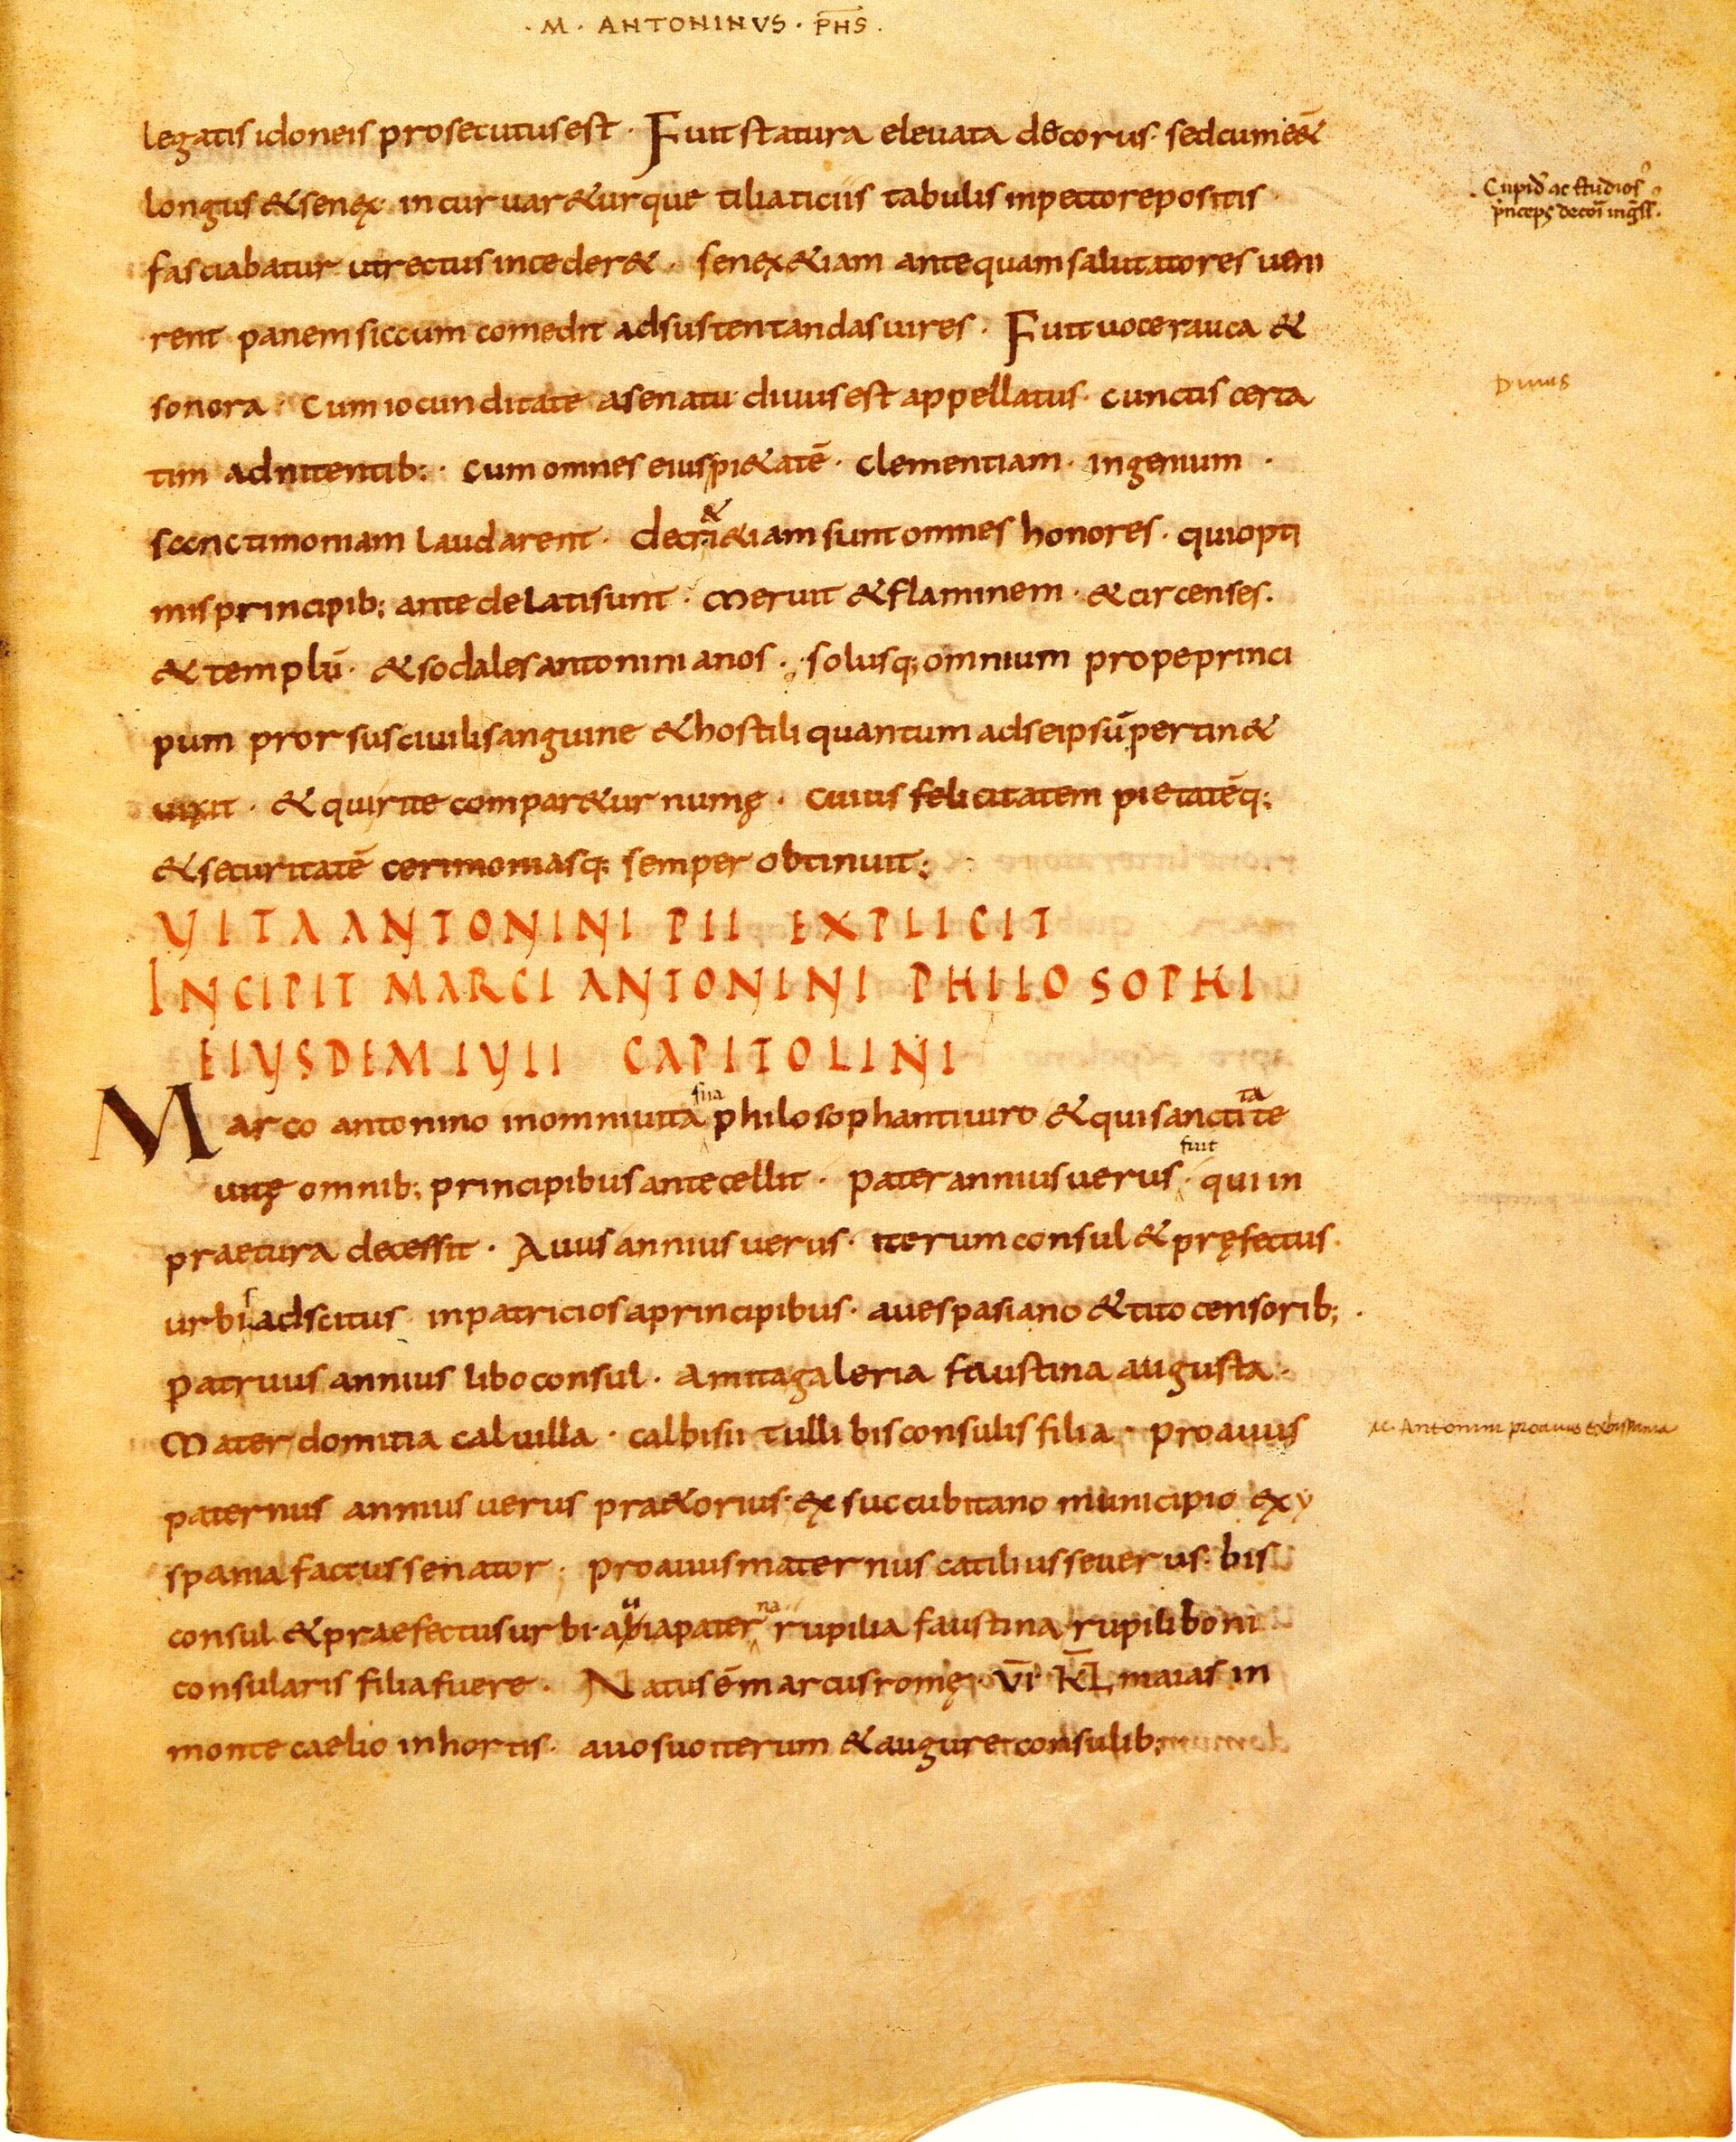 · M · ANTONINVS · PHS ·
legatis idoneis prosecutus est · Fuit statura eleuata decorus · sed cum ēē&
longus & senęx · incuruar&urque tiliaticiis tabulis inpectore positis ·
fasciabatur ut rectus inceder& · senęx &iam ante quam salutatores ueni
rent panem siccum comedit ad sustentandas uires · Fuit uoce rauca &
sonora · Cum iocunditate asenatu diuus est appellatus · cunctis certa
Diuus
tim adnitentib: · cum omnes eius pi&atē · clementiam · ingenium ·
sanctimoniam laudarent · decr&a &iam sunt omnes honores · qui opti
mis principib; ante delati sunt · Meruit & flaminem · & circenses ·
& templū · & sodales antoninianos · solusq; omnium prope princi
pum prorsus ciuili sanguine & hostili quantum ad se ipsū pertin&
uixit · & qui rite compar&ur numę · cuius felicitatem pietatēq;
& securitatē cerimoniasq; semper obtinuit ;
VITA ANTONINI PII EXPLICIT
INCIPIT MARCI ANTONINI PHIIOSOPHI
EIVSDEM IVII CAPITOLINI
sua
Marco antonino in omni uita philosophanti uiro & qui sanctitate
fuit
uitę omnib; principibus antecellit · pater annius uerus · qui in
praetura decessit · Auus annius uerus · iterum consul & pręfectus ·
urbi adscitus inpatricios aprincipibus · auespasiano & tito censorib; ·
patruus annius libo consul · Amita galeria faustina augusta ·
Mater domitia caluilla · calbisii tulli bis consulis filia · proauus
M. Antonini proauus ex hispania
paternus annius uerus pra&orius · ex succubitano municipio ex y
spania factus senator · proauus maternus catilius seuerus · bis
consul & praefectus urbi · auia paterna rupilia faustina rupili boni
consularis filia fuere · Natus ē marcus romę · VI · KL maias in
monte caelio in hortis · auo suo iterum & augure consulib;